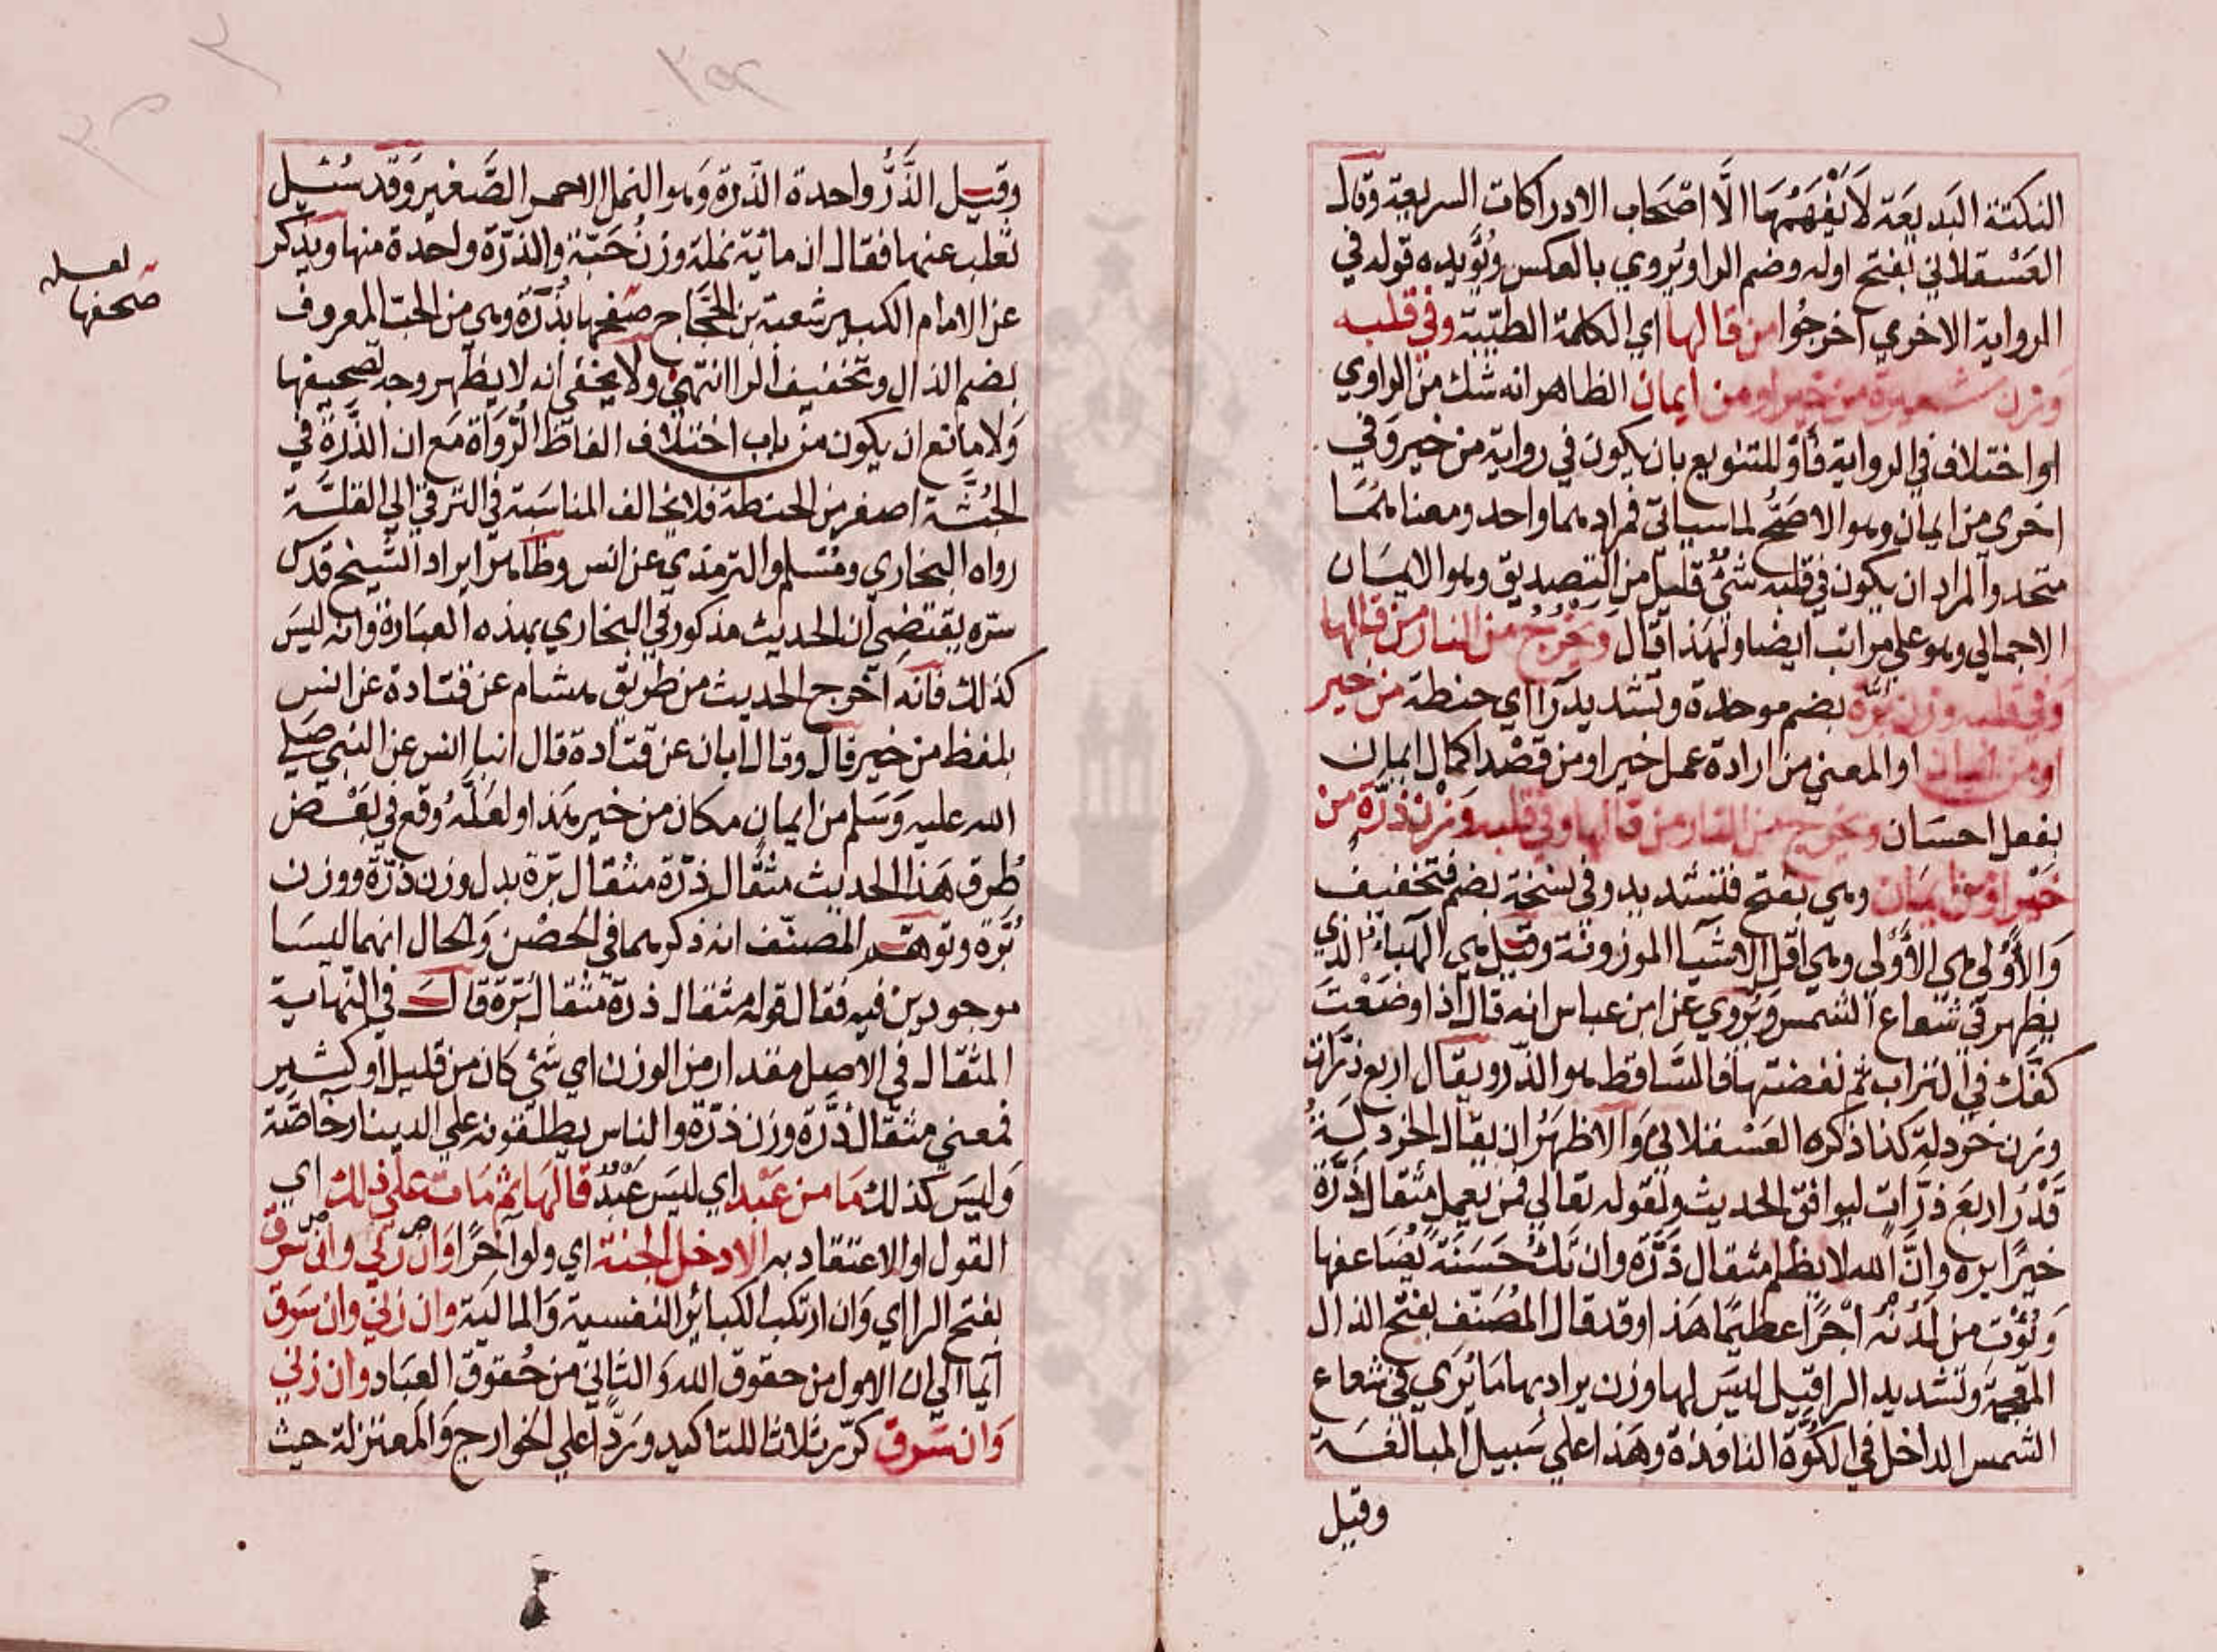 النكتة البديعة لا يفهمها الا اصحاب الادراكات السريعة وقال
العسقلاني بفتح اوله وضم الرا ويروي بالعكس ويؤيده قوله في
الرواية الاخري اخرجوا من قالها اي الكلمة الطيبة وفي قلبه
وزن شعيرة من خير او من ايمان الظاهر انه شك من الراوي
او اختلاف في الرواية فأو للتنويع بان يكون في رواية من خير وفي
اخري من ايمان وهو الاصح لما سياتي فمرادهما واحد ومعناهما
متحد والمراد ان يكون في قلبه شئ قليل من التصديق وهو الايمان
الاجمالي وهو علي مراتب ايضا ولهذا قال ويخرج من النار من قالها
وفي قلبه وزن برة بضم موحدة وتشديد را اي حنطة من خير
او من ايمان او المعني من ارادة عمل خير او من قصد اكمال ايمان
بفعل احسان ويخرج من النار من قالها وفي قلبه وزن ذرة من
خير او من ايمان وهي بفتح فتشديد وفي نسخة بضم فتخفيف
والأولي هي الأولى وهي اقل الاشيا الموزونة وقيل هي الهباء الذي
يظهر في شعاع الشمس ويروي عن ابن عباس انه قال اذا وضعت
كفك في التراب ثم نفضتها فالساقط هو الذر ويقال اربع ذرات
وزن خردلة كذا ذكره العسقلاني والاظهر ان يقال الخردلة
قدر اربع ذرات ليوافق الحديث ولقوله تعالي فمن يعمل مثقال ذرة
خيرا يره وان الله لا يظلم مثقال ذرة وان تك حسنة يضاعفها
ويؤت من لدنه اجرا عظيما هذا وقد قال المصنف بفتح الذال
المعجمة وتشديد الرا قيل ليس لها وزن يراد بها ما يري في شعاع
الشمس الداخل في الكوة النافذة وهذا علي سبيل المبالغة
وقيل
وقيل الذر واحدة الذرة وهو النمل الاحمر الصغير وقد سئل
ثعلب عنها فقال ان مائية نملة وزن حبة والذرة واحدة منها ويذكر
عن الامام الكبير شعبة بن الحجاج صفحها بذرة وهي من الحب المعروف
لعله
صحفها
بضم الذال وتخفيف الرا انتهي ولا يخفي انه لا يظهر وجه تصحيفها
ولا مانع ان يكون من باب اختلاف الفاظ الرواة مع ان الذرة في
الجثة اصغر من الحنطة فلا يخالف المناسبة في الترقي الي القلة
رواه البخاري ومسلم والترمذي عن انس وظاهر ايراد الشيخ قدس
سره يقتضي ان الحديث مذكور في البخاري بهذه العبارة وانه ليس
كذلك فانه اخرج الحديث من طريق هشام عن قتادة عن انس
بلفظ من خير قال وقال ابان عن قتادة قال انبا انس عن النبي صلي
الله عليه وسلم من ايمان مكان من خير هذا ولعله وقع في بعض
طرق هذا الحديث مثقال ذرة مثقال برة بدل وزن ذرة ووزن
برة وتوهم المصنف انه ذكرهما في الحصن والحال انهما ليسا
موجودين فيه فقال قوله مثقال ذرة مثقال برة قال في النهاية
المثقال في الاصل مقدار من الوزن اي شئ كان من قليل او كثير
فمعني مثقال ذرة وزن ذرة والناس يطلقونه علي الدينار خاصة
وليس كذلك ما من عبد اي ليس عبد قالها ثم مات علي ذلك اي
القول او الاعتقاد به الا دخل الجنة اي ولو آخرا وان زني وان سرق
بفتح الرا اي وان ارتكب الكبائر النفسية والمالية وان زني وان سرق
ايماا الي ان الاول من حقوق الله والثاني من حقوق العباد وان زني
وان سرق كرر ثلاثا للتاكيد وردا علي الخوارج والمعتزلة حيث